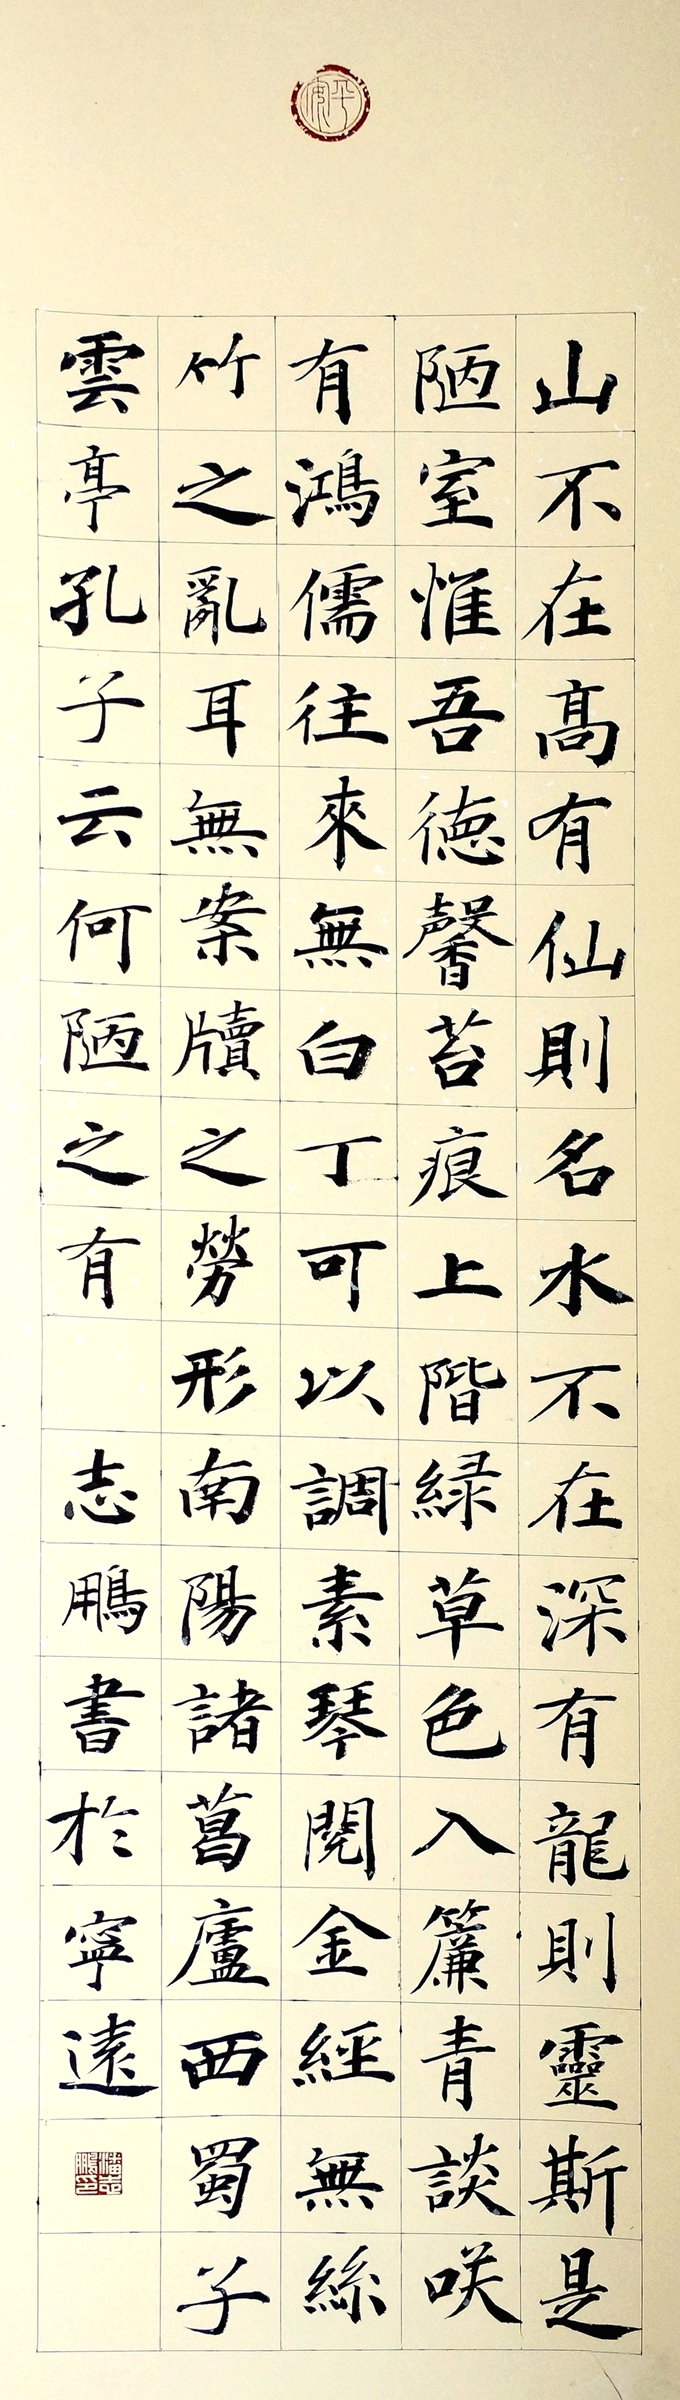 平安
山不在高有仙則名水不在深有龍則靈斯是
陋室惟吾徳馨苔痕上階緑草色入簾青談咲
有鴻儒往來無白丁可以調素琴閱金經無絲
竹之亂耳無案牘之勞形南陽諸葛廬西蜀子
雲亭孔子云何陋之有
志鵬書於寧遠
潘志鵬印